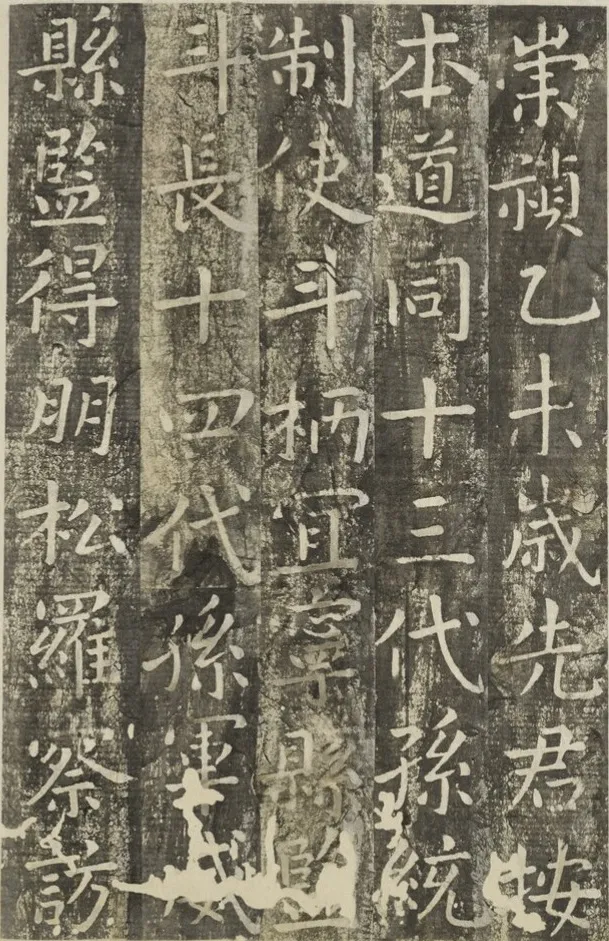 崇禎乙未歲先君按
本道同十三代孫統
制使斗柄宜寧縣監
斗長十四代孫軍威
縣監得朋松羅察訪